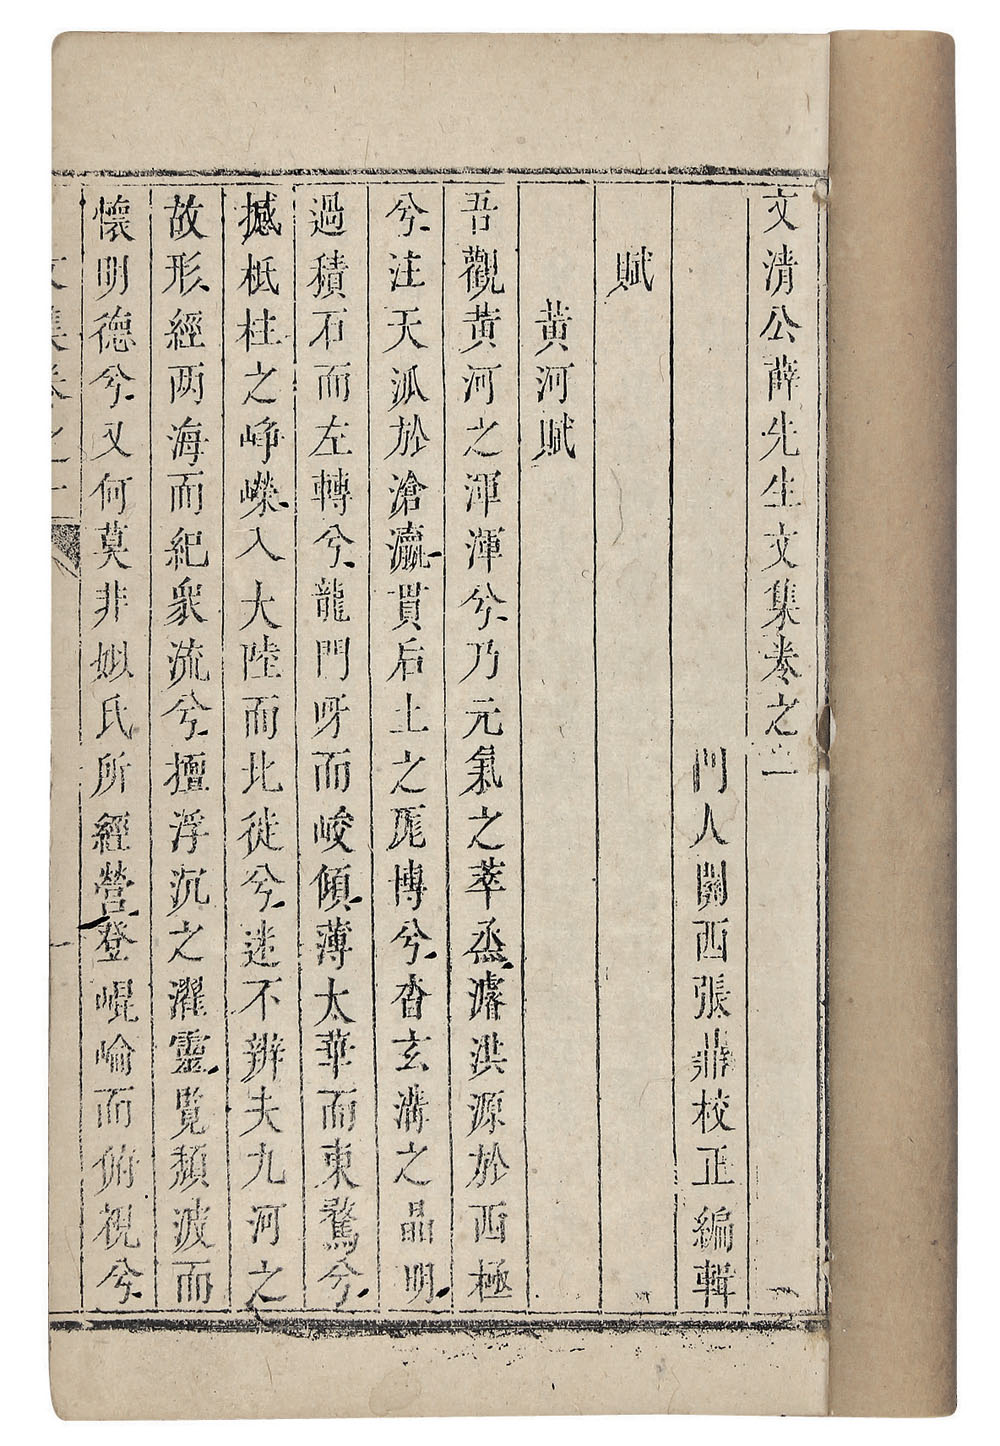 文清公薛先生文集卷之一
門人關西張鼎校正編輯
賦
黄河賦
吾觀黄河之渾渾兮乃元氣之萃烝濬洪源於西極
兮注天派於滄瀛貫后土之厖博兮沓玄溝之晶明
過積石而左轉兮龍門呀而峻傾薄太華而東騖兮
撼柢柱之崢嶸入大陸而北徙兮迷不辨夫九河之
故形經两海而紀衆流兮擅浮沉之濯靈覧頽波而
懷明德兮又何莫非姒氏所經營登崐崘而俯視兮
文集卷之一
一